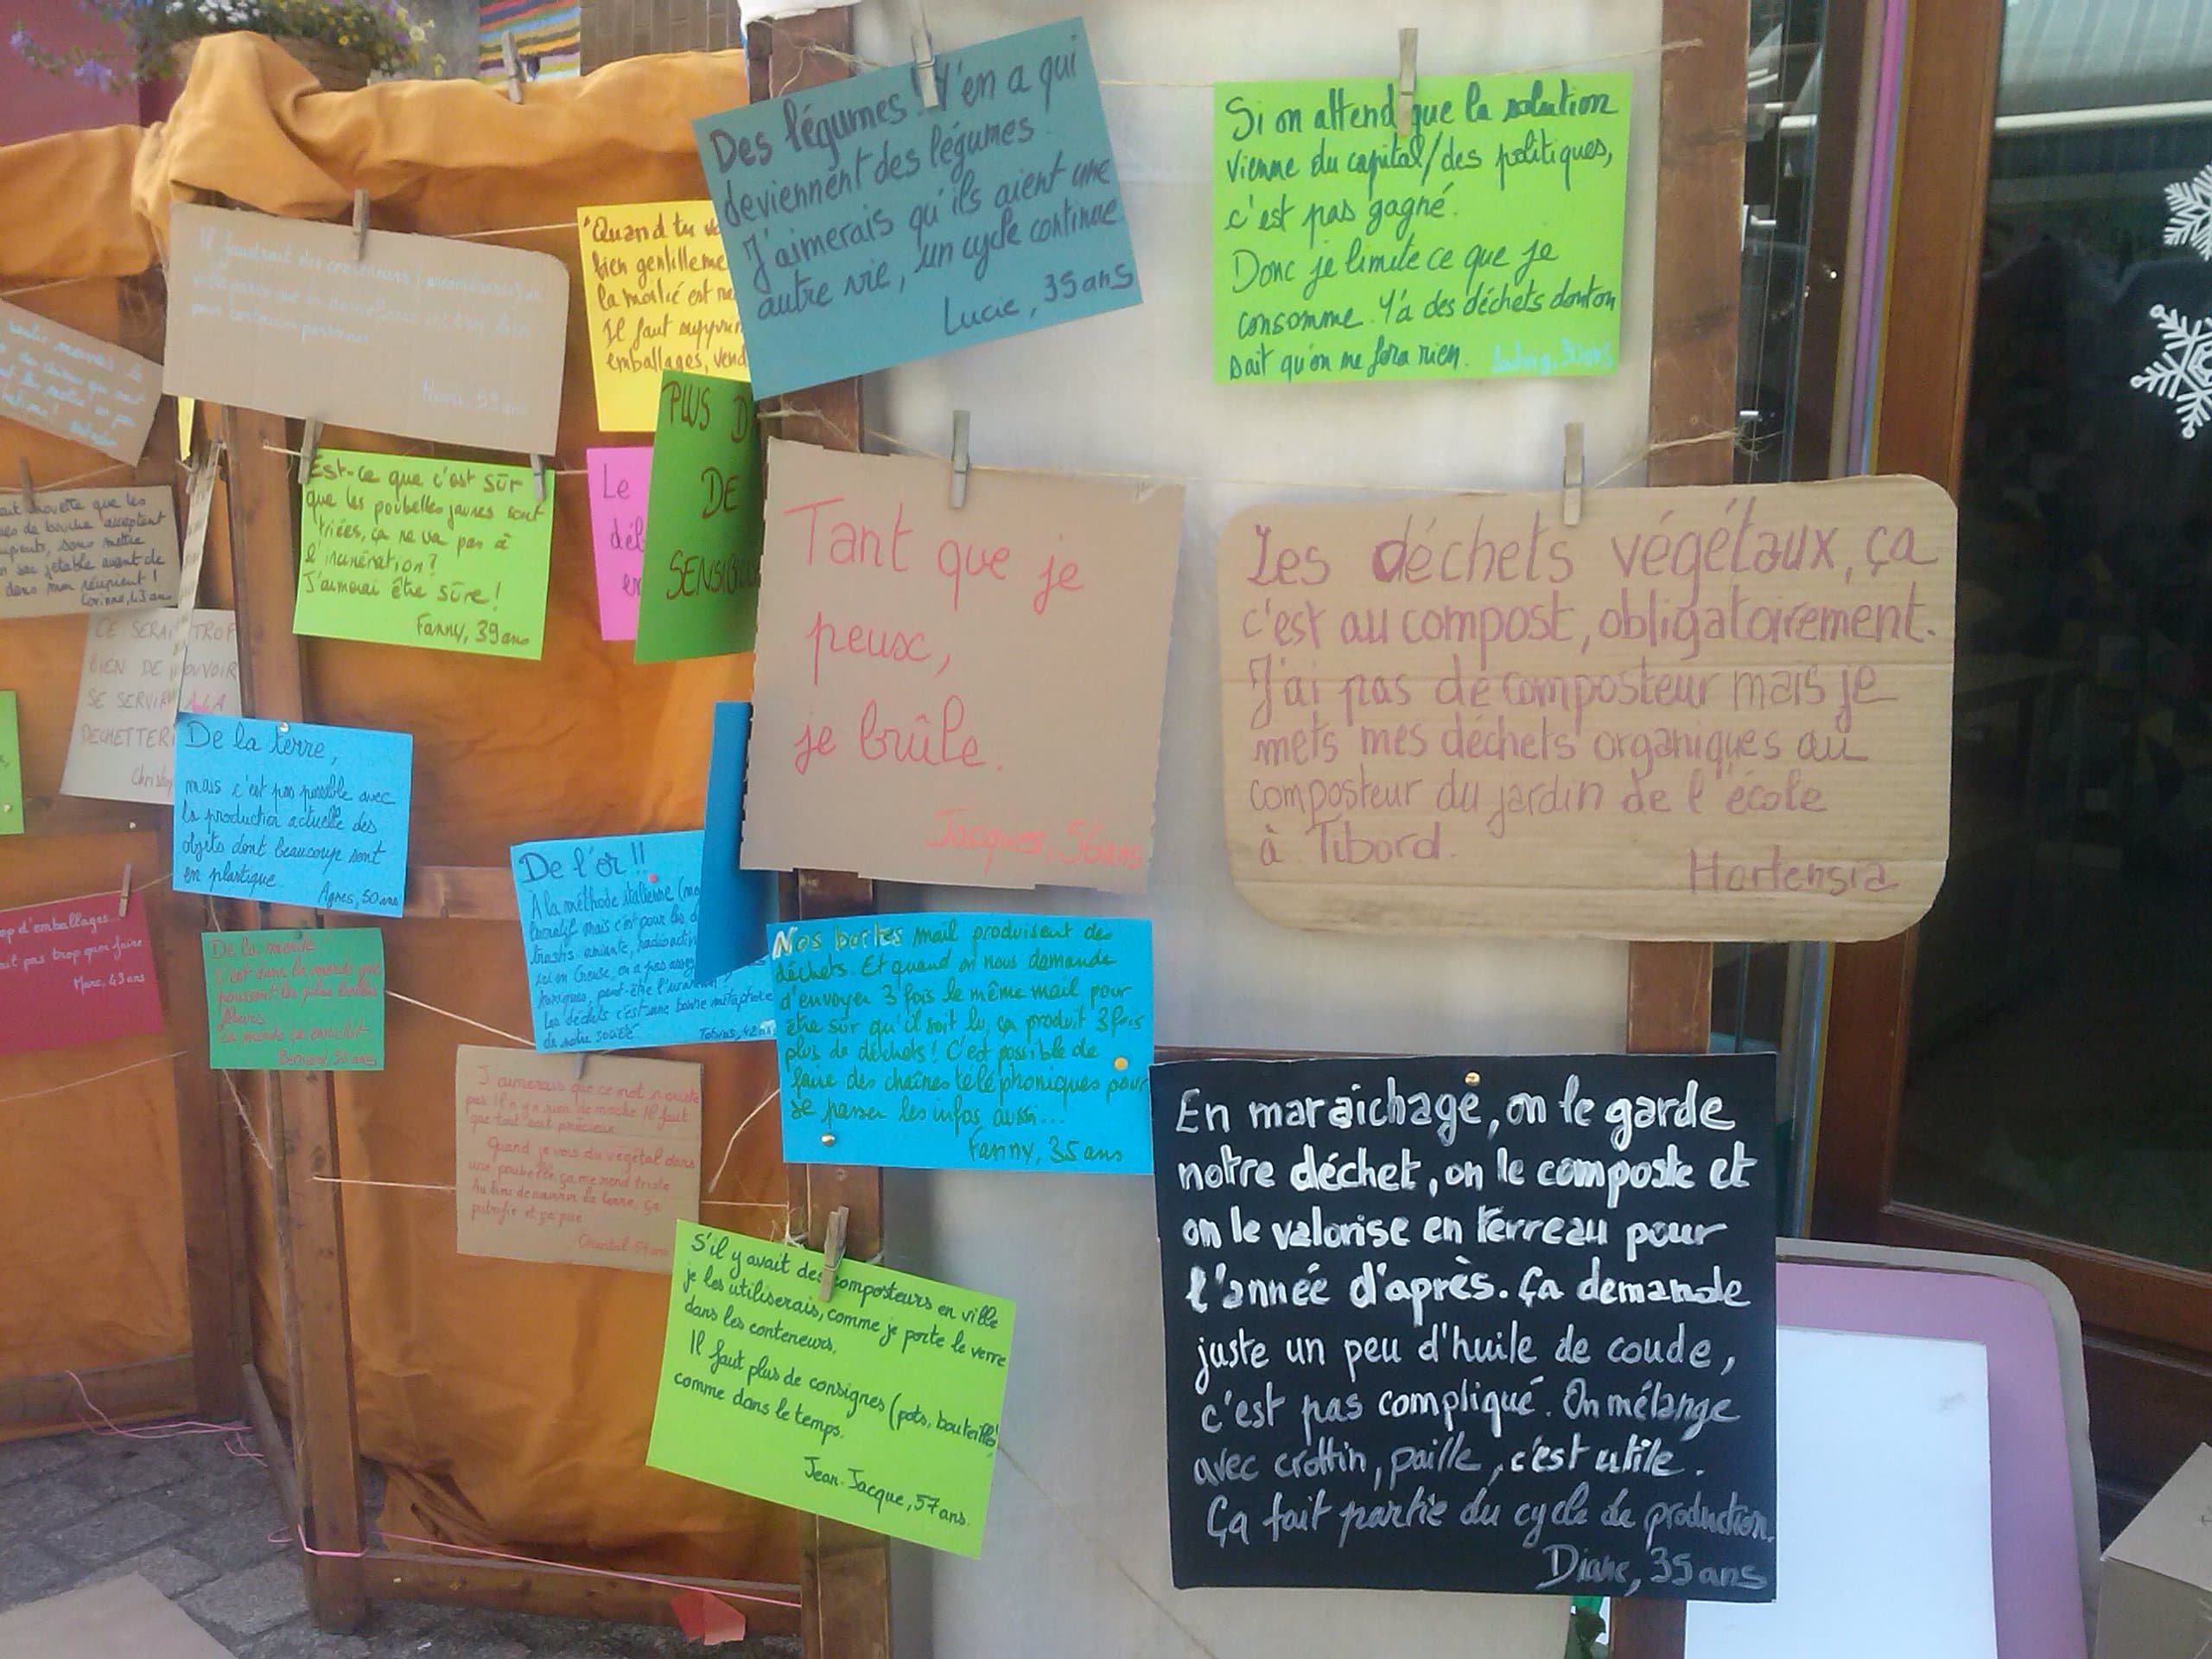 Il faudrait des
Nora, 53 ans
"Quand tu
bien gentilleme
la moitié est
Il faut
emballages, vend
Des légumes ! Y'en a qui
deviennent des légumes !
J'aimerais qu'ils aient une
autre vie, un cycle continue.
Lucie, 35 ans
Si on attend que la solution
vienne du capital/des politiques,
c'est pas gagné.
Donc je limite ce que je
consomme. Y'a des déchets dont on
sait qu'on ne fera rien.
que les
de bouche acceptent
sans mettre
sac jetable avant de
dans mon récipient !
Corinne, 43 ans
Est-ce que c'est sûr
que les poubelles jaunes sont
triées, ça ne va pas à
l'incinération ?
J'aimerai être sûre !
Fanny, 39 ans
Le
PLUS D
DE
SENSIBI
Tant que je
peux,
je brûle.
Jacques, 56 ans
Les déchets végétaux, ça
c'est au compost, obligatoirement.
J'ai pas de composteur mais je
mets mes déchets organiques au
composteur du jardin de l'école
à Tibord.
Hortensia
CE SERAI TROP
BIEN DE POUVOIR
SE SERVIR
DECHETTERI
De la terre,
mais c'est pas possible avec
la production actuelle des
objets dont beaucoup sont
en plastique.
Agnes, 50 ans
op d'emballages
ait pas trop quoi faire
Marc, 43 ans
De la merde
C'est dans la merde que
poussent les plus belles
fleurs
Bernard, 58 ans
De l'or !!
A la méthode italienne
lucratif mais c'est pour les
trashs amiante, radioactiv
ici en Creuse, on a pas assez
toxiques, peut-être l'uranium
Les déchets c'est une bonne métaphore
de notre société
Tobias, 42 ans
Nos boites mail produisent des
déchets. Et quand on nous demande
d'envoyer 3 fois le même mail pour
être sûr qu'il soit lu, ça produit 3 fois
plus de déchets ! C'est possible de
faire des chaînes téléphoniques pour
se passer les infos aussi...
Fanny, 35 ans
J'aimerais que ce mot n'existe
pas. Il n'y a rien de moche. Il faut
que tout soit précieux
Quand je vois du végétal dans
une poubelle, ça me rend triste
Au lieu de nourrir la terre, ça
putréfie et ça pue
Chantal
S'il y avait des composteurs en ville
je les utiliserais, comme je porte le verre
dans les conteneurs.
Il faut plus de consignes (pots, bouteilles)
comme dans le temps.
Jean-Jacque, 57 ans.
En maraîchage, on le garde
notre déchet, on le composte et
on le valorise en terreau pour
l'année d'après. Ça demande
juste un peu d'huile de coude,
c'est pas compliqué. On mélange
avec crottin, paille, c'est utile.
Ça fait partie du cycle de production.
Diane, 35 ans